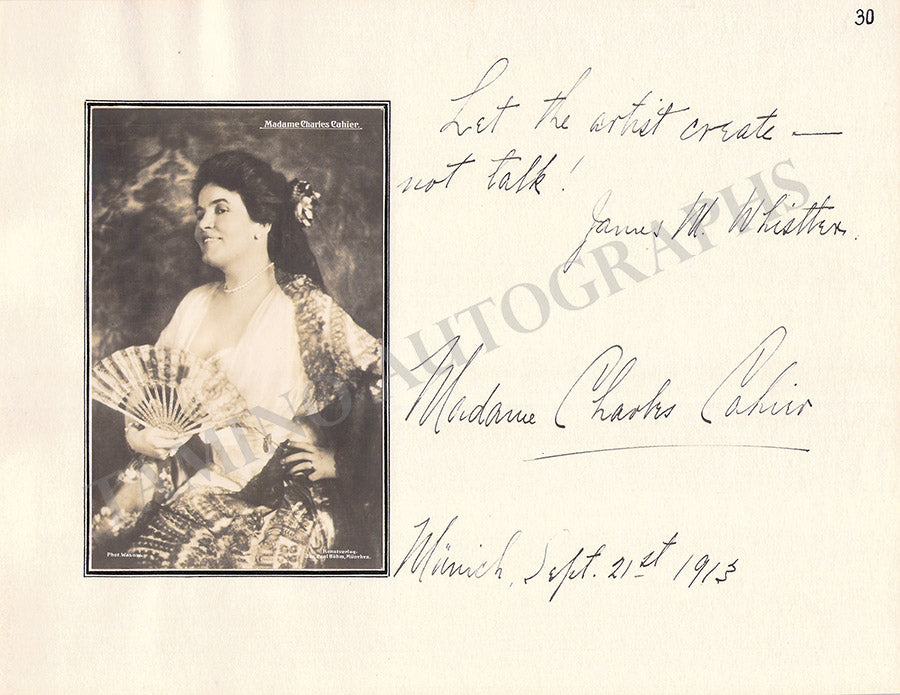 30
Madame Charles Cahier.
Let the artist create —
not talk!
James M. Whistler.
Madame Charles Cahier
Münich, Sept. 21st 1913
Kunstverlag
Paul Böhm, München.
TAMINO AUTOGRAPHS